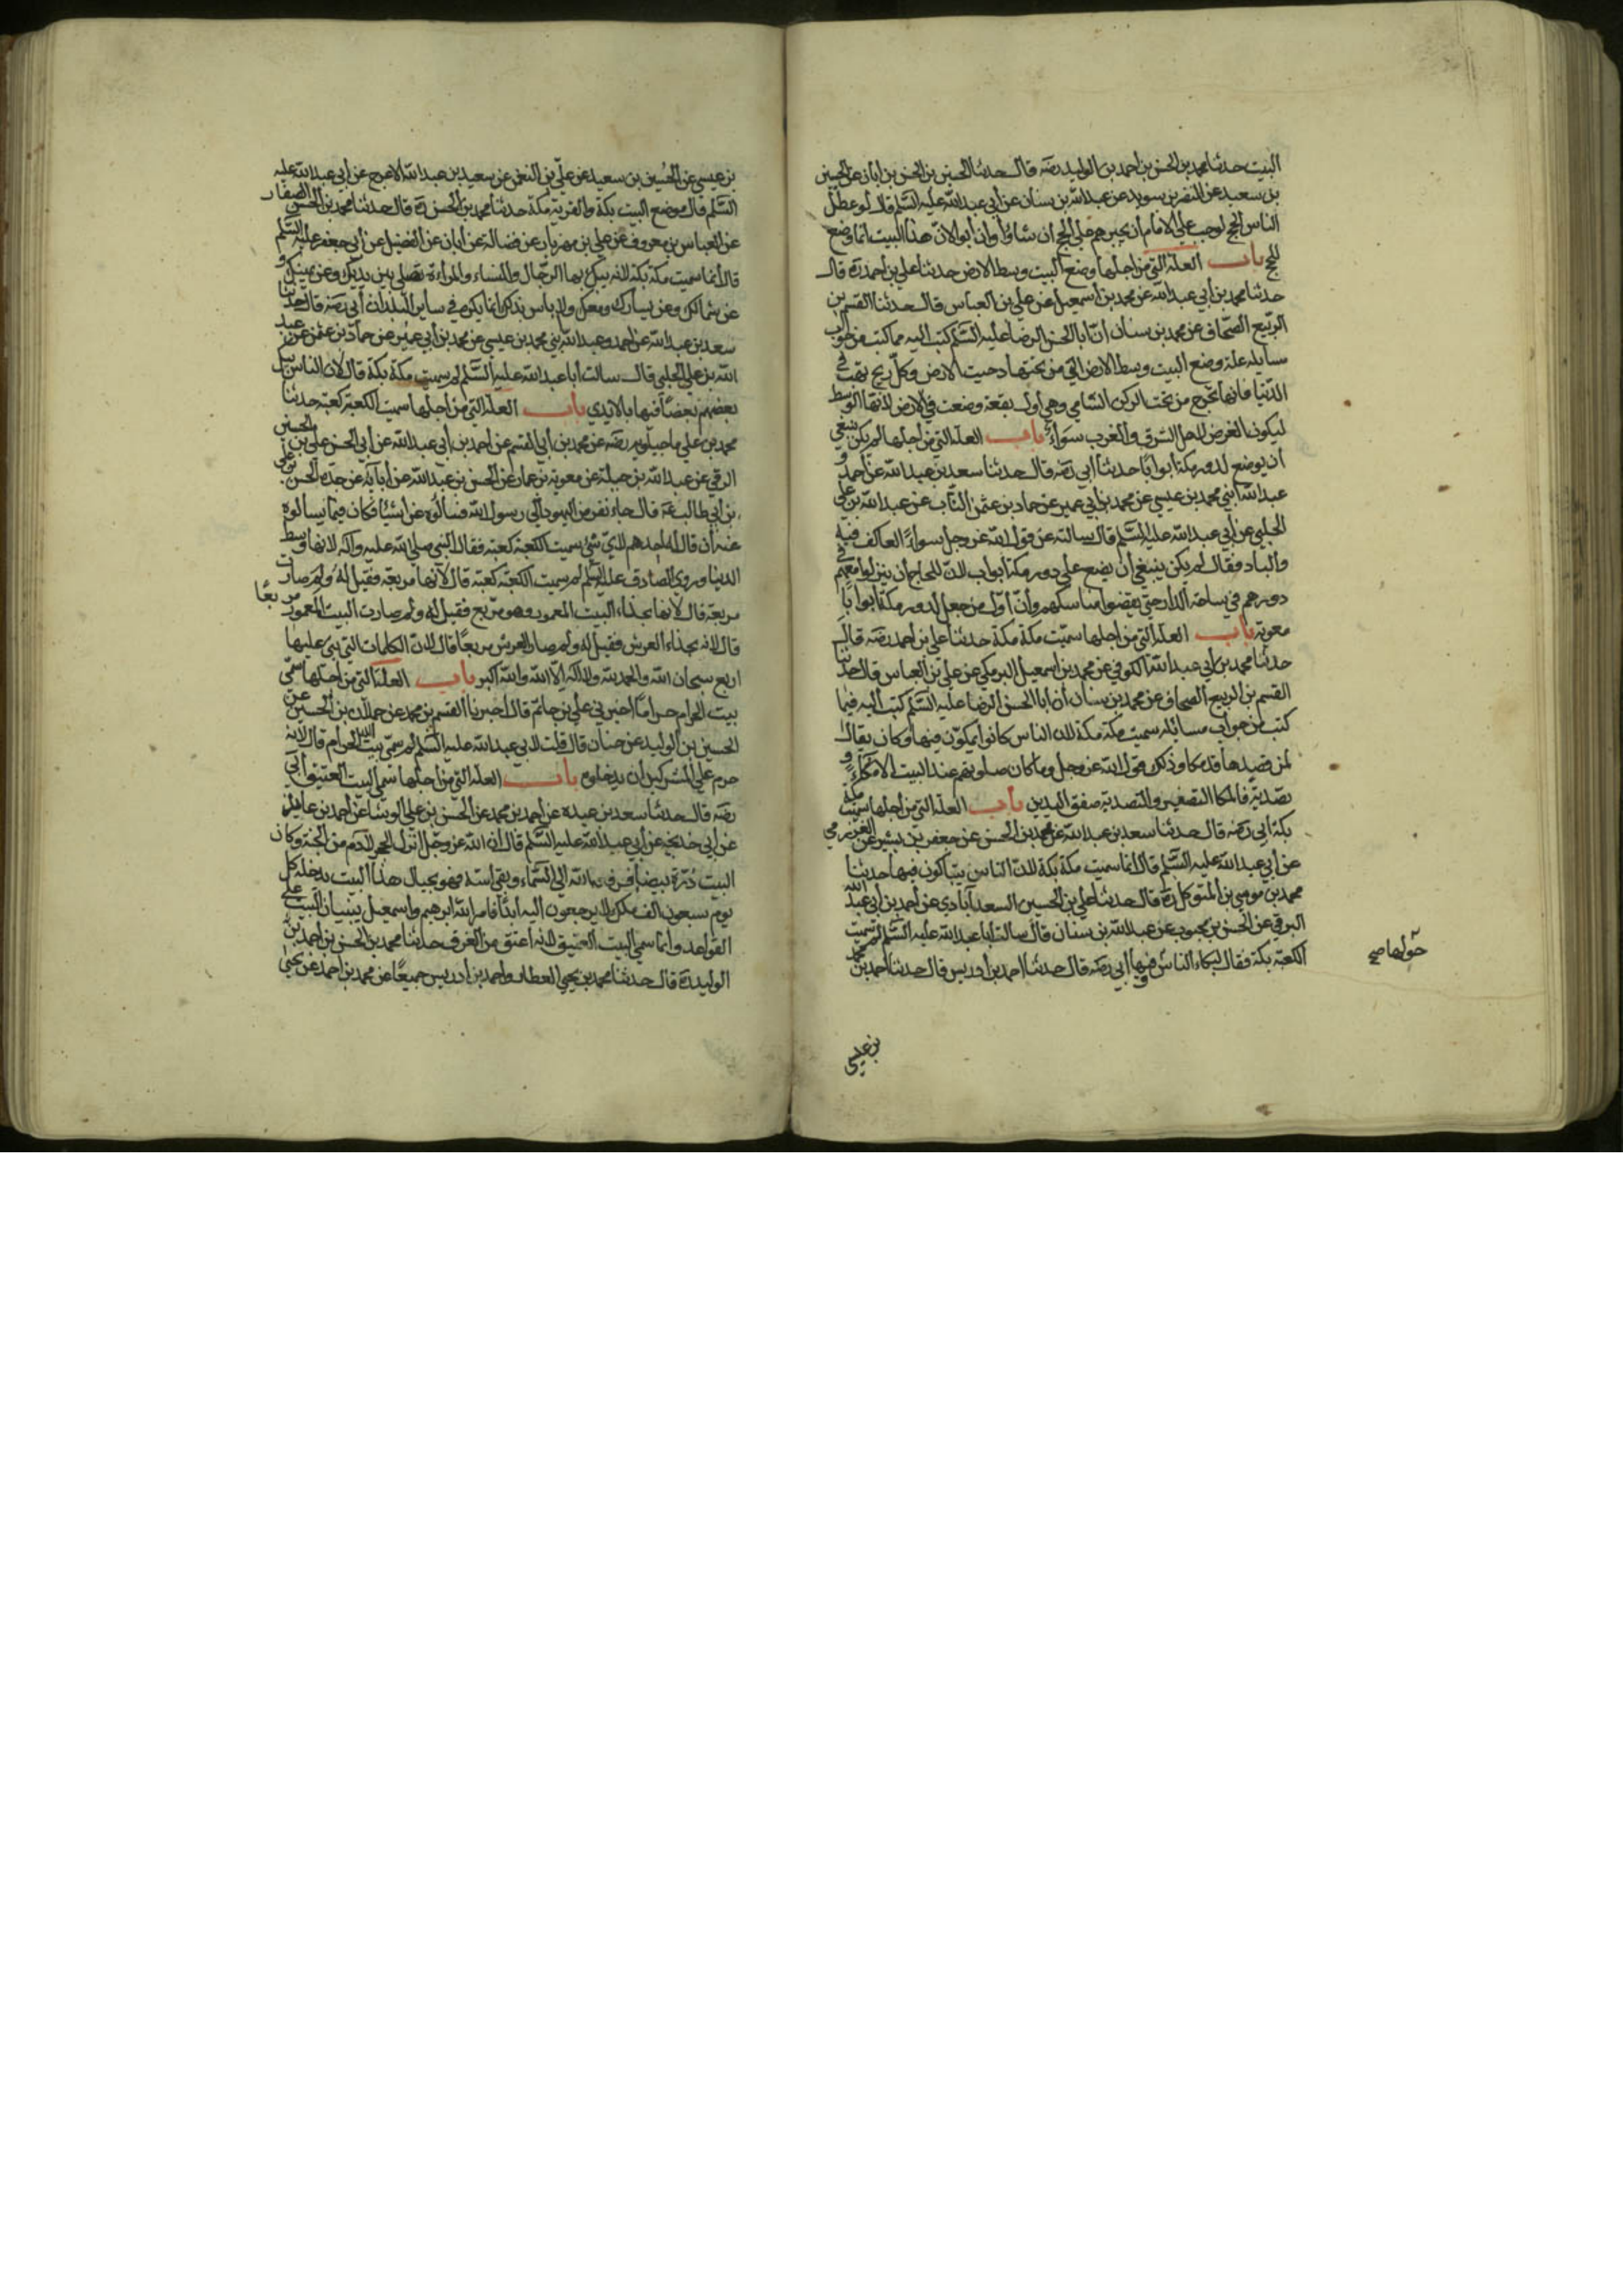 البيت حدثنا محمد بن الحسن بن احمد بن الوليد رضه قال حدثنا الحسين بن الحسن بن ابان عن الحسين
بن سعيد عن النضر بن سويد عن عبد الله بن سنان عن أبي عبد الله عليه السّلم قال لو عطل
الناس الحج لوجب على الامام أن يجبرهم على الحج ان شاؤا وان ابوا لانّ هذا البيت انما وضع
للحج باب العلة التي من اجلها وضع البيت وسط الارض حدثنا علي بن احمد ره قال
حدثنا محمد بن أبي عبد الله عن محمد بن اسمعيل عن علي بن العباس قال حدثنا القسم بن
الربيع الصّحاف عن محمد بن سنان أنّ ابا الحسن الرضا عليه السّلم كتب اليه مما كتب من جواب
مسايله علة وضع البيت وسط الارض التي من تحتها دحيت الارض وكلّ ريح تهبّ في
الدّنيا فانها تخرج من تحت الركن الشامي وهي أول بقعة وضعت في الارض لانها الوسط
ليكون الغرض لاهل الشرق والغرب سواءٌ باب العلة التي من اجلها لم يكن ينبغي
ان يوضع لدور مكة ابوابًا حدثنا أبي رضه قال حدثنا سعد بن عبد الله عن احمد و
عبد الله ابني محمد بن عيسى عن محمد بن أبي عمير عن حماد بن عثمن الناب عن عبد الله بن علي
الحلبي عن أبي عبد الله عليه السّلم قال سالته عن قول الله عز وجل سواءً العاكف فيه
والباد فقال لم يكن ينبغي أن يضع على دور مكة ابواب لانّ للحاج أن ينزلوا معهم في
دورهم في ساحة الدار حتى يقضوا مناسكهم وأنّ أوّل من جعل لدور مكة أبوابًا
معوية باب العلة التي من اجلها سميّت مكة مكة حدثنا علي بن احمد رضه قال
حدثنا محمد بن أبي عبد الله الكوفي عن محمد بن اسمعيل البرمكي عن علي بن العباس قال حدثنا
القسم بن الربيع الصحاف عن محمد بن سنان أن ابا الحسن الرضا عليه السّلم كتب اليه فيما
كتب من جواب مسائله سميت مكة مكة لان الناس كانوا يمكون فيها وكان يقال
لمن قصدها قد مكا وذلك قول الله عز وجل وما كان صلوتهم عند البيت الا مكاءً و
تصدية فالمكا التصفير والتصدية صفق اليدين باب العلة التي من اجلها سميت مكة
بكة ابي رضه قال حدثنا سعد بن عبد الله عن محمد بن الحسن عن جعفر بن بشير عن العزرمي
عن أبي عبد الله عليه السّلم قال انما سميت مكة بكة لانّ الناس يتباكون فيها حدثنا
محمد بن موسى بن المتوكل ره قال حدثنا علي بن الحسين السعد آبادي عن أحمد بن ابي عبد الله
البرقي عن الحسن بن محبوب عن عبد الله بن سنان قال سالت ابا عبد الله عليه السّلم لم سميت
الكعبة بكة فقال لبكاء الناس فيها ابي رضه قال حدثنا احمد بن ادريس قال حدثنا احمد بن محمد
حولها صح
بن عيسى
بن عيسى عن الحسين بن سعيد عن علي بن النعمن عن سعيد بن عبد الله الاعرج عن أبي عبد الله عليه
السّلم قال موضع البيت بكة والقرية مكة حدثنا محمد بن الحسن ره قال حدثنا محمد بن الحسن الصفار
عن العباس بن معروف عن علي بن مهزيار عن فضالة عن ابان عن الفضيل عن أبي جعفر عليه السّلم
قال أنما سميت مكة بكة لانه يبك بها الرّجال والنساء والمراءة تصلي بين يديك وعن يمينك و
عن شمالك وعن يسارك ومعك ولا باس بذلك انما يكره في ساير البلدان أبي رضه قال حدثنا
سعد بن عبد الله عن احمد وعبد الله ابني محمد بن عيسى عن محمد بن أبي عمير عن حماد بن عثمن عن عبيد
الله بن علي الحلبي قال سالت أبا عبد الله عليه السّلم لم سميت مكة بكة قال لان الناس يبك
بعضهم بعضًا فيها بالايدي باب العلة التي من اجلها سميت الكعبة كعبة حدثنا
محمد بن علي ماجيلويه رضه عن محمد بن أبي القسم عن احمد بن أبي عبد الله عن أبي الحسن علي بن الحسين
البرقي عن عبد الله بن جبلة عن معوية بن عمار عن الحسن بن عبد الله عن أبايه عن جده الحسن بن علي
بن أبي طالب عه قال جاء نفر من اليهود إلى رسول الله فسألوه عن اشيا فكان فيما يسالوه
عنه أن قال له احدهم لاي شئ سميت الكعبة كعبة فقال النبي صلى الله عليه وآله لانها وسط
الدنيا وروى الصادق عليه السّلم لم سميت الكعبة كعبة قال لانها مربعة فقيل له ولم صارت
مربعة قال لانها بحذاء البيت المعمور وهو مربع فقيل له ولم صارت البيت المعمور مربعًا
قال لانه بحذاء العرش فقيل له ولم صار العرش مربعًا قال لان الكلمات التي بني عليها
اربع سبحان الله والحمد لله ولا اله إلا الله والله اكبر باب العلة التي من اجلها سمّي
بيت الحرام حرامًا أخبرني علي بن حاتم قال اخبرنا القسم بن محمد عن حمدان بن الحسين عن
الحسين بن الوليد عن حنان قال قلت لابي عبد الله عليه السّلم لم سمّي بيت الله الحرام قال لانه
حرم على المشركين ان يدخلوه باب العلة التي من اجلها سمي البيت العتيق أبي
رضه قال حدثنا سعد بن عبده عن احمد بن محمد عن الحسن بن علي الوشا عن احمد بن عايذ
عن ابي خديجة عن أبي عبد الله عليه السّلم قال ان الله عز وجل انزل الحجر لادم من الجنة وكان
البيت دُرّة بيضا فرفعه الله الى السّماء وبقي أسه فهو بحيال هذا البيت يدخله كل
يوم سبعون الف ملك لا يرجعون اليه ابدًا فامر الله ابرهيم واسمعيل يبنيان البيت على
القواعد وانما سمي البيت العتيق لانه اعتق من الغرق حدثنا محمد بن الحسن بن احمد بن
الوليد ره قال حدثنا محمد بن يحيى العطار واحمد بن ادريس جميعًا عن محمد بن احمد عن يحيى